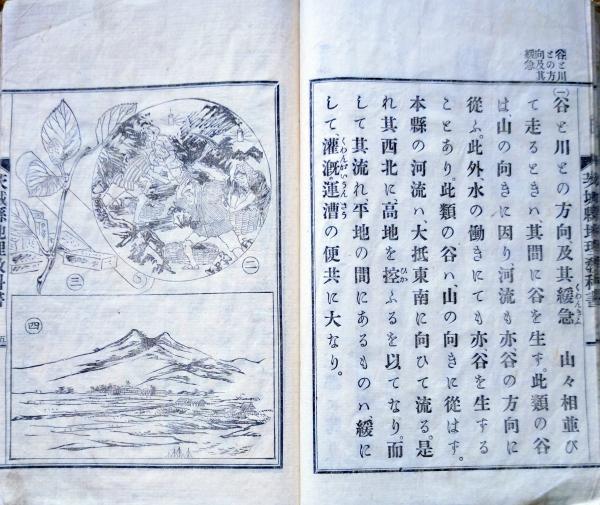 谷と川
との方
向及其
緩急
(一)谷と川との方向及其緩急 山々相並び
て走るときハ其間に谷を生す。此類の谷
は、山の向きに因り河流も亦谷の方向に
從ふ。此外、水の働きにても亦谷を生する
ことあり。此類の谷ハ、山の向きに從はす。
本縣の河流ハ大抵東南に向ひて流る。是
れ其西北に、高地を控ふるを以てなり。而
して其流れ平地の間にあるものハ緩に
して、灌漑、運漕の便共に大なり。
くわんきふ
ひか
くわんがいうんさう
茨城縣地理教科書
茨城縣地理教科書
五
二
三
四